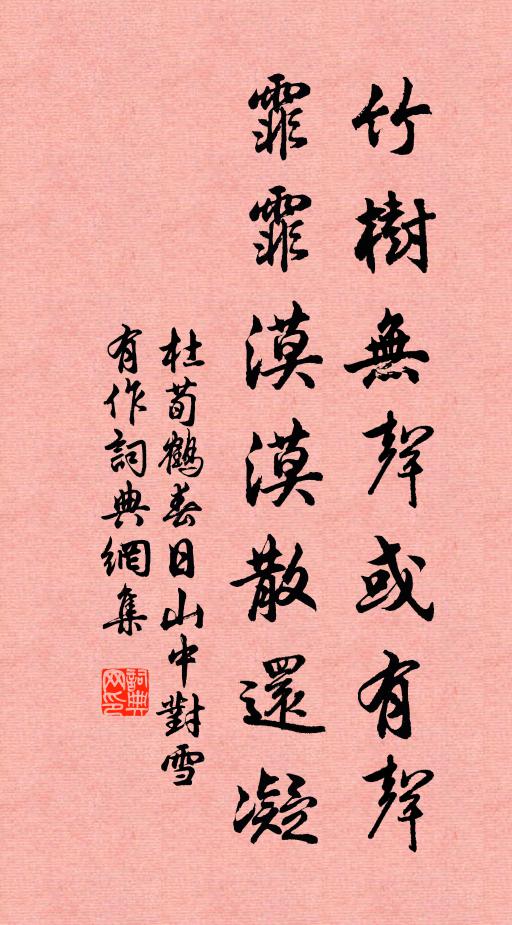 竹樹無聲或有聲
霏霏漠漠散還凝
杜荀鶴春日山中對雪
有作詞典網集
詞典
网印